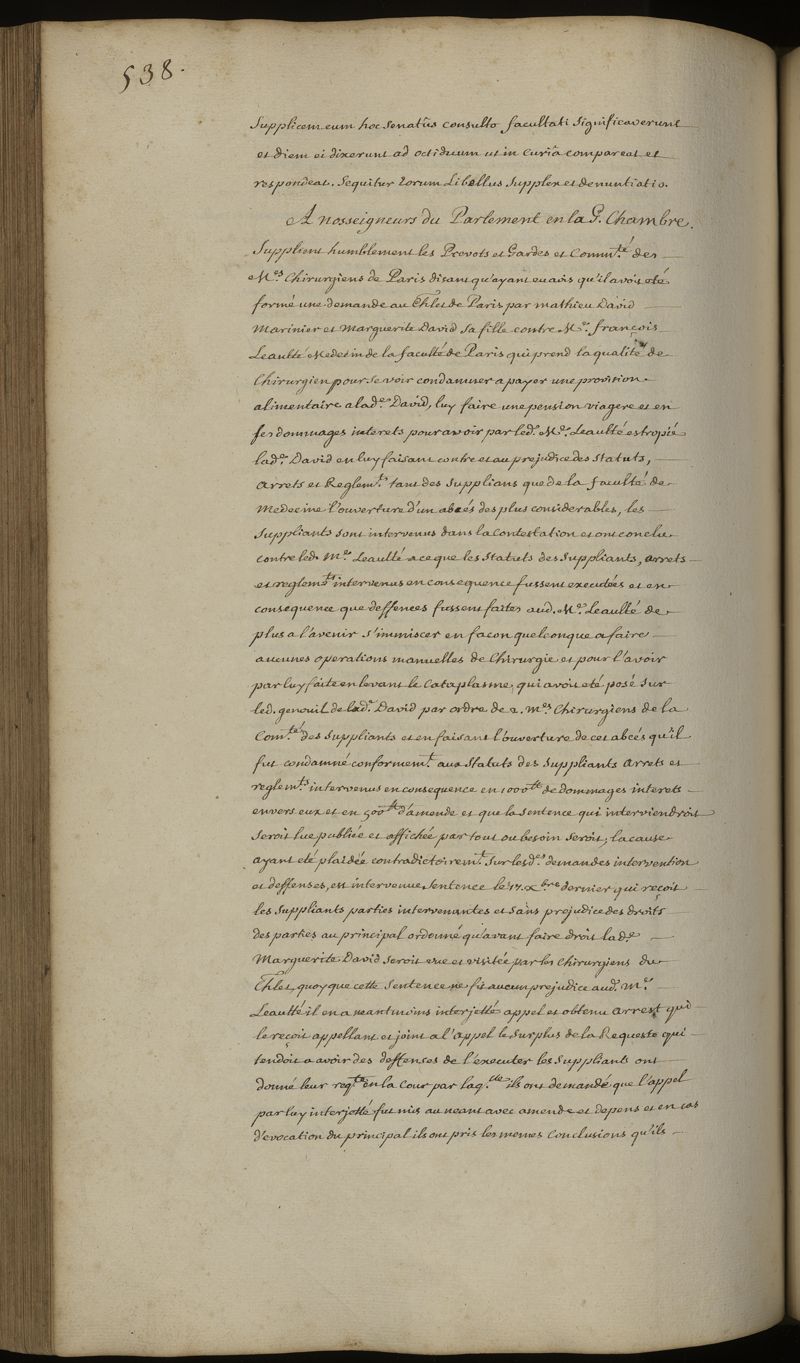 538.
Supplicem cum hoc Senatûs consulto facultati Significaverunt
et diem ei dixerunt ad octiduum ut in Curiâ compareat et
respondeat. Sequitur horum Libellus Supplex et denuntiatio.
A nosseigneurs du Parlement en la G. Chambre.
Supplient humblement les Prevots et Gardes et Commté des
Mes Chirurgiens de Paris disant qu'ayant eu avis qu'il avoit eté
formé une demande au Chlet de Paris par mathieu David
Marinier et Marguerite David sa fille contre Me françois
Leaulté Medecin de la faculté de Paris qui prend la qualité de
Chirurgien pour se voir condamner a payer une provision
alimentaire a lade David, luy faire une pension viagere et en
ses dommages interets pour avoir par led. Me Leaulté estropié
lade David en luy faisant contre et au prejudice des Statuts,
Arrets et Reglemts tant des Supplians que de la faculté de
Medecine l'ouverture d'un abcés des plus considerables, les
Suppliants sont intervenus dans la contestation et ont conclu
contre led. Me Leaulté a ce que les Statuts des Suppliants, arrets
et reglemts intervenus en consequence fussent executées et en
consequence que deffences fussent faites aud. Me Leaulté de
plus a l'avenir s'immiscer en facon quelconque a faire
aucunes operations manuelles de Chirurgie et pour l'avoir
par luy faite en levant le Cataplasme, qui avoit eté posé sur
led. genouil de lade David par ordre de 2. Mes Chirurgiens de la
Comté des Suppliants et en faisant l'ouverture de cet abcés qu'il
fut condamné conformemt aux Statuts des Suppliants Arrets et
reglemts intervenus en consequence en 1000tt de dommages interets
envers eux et en 500tt d'amende et que la Sentence qui interviendroit
Seroit lue publiée et affichée par tout ou besoin Seroit, la cause
ayant eté plaidée contradictoiremt sur lesdes demandes intervention
et deffenses, est intervenue Sentence le 17. Xbre dernier qui reçoit
les Suppliants parties intervenantes et sans prejudice des droits
des parties au principal ordonné qu'avant faire droit lade
Marguerite David seroit vue et visitée par les Chirurgiens du
Chlet, quoyque cette Sentence ne fit aucun prejudice aud. Me
Leaulté il en a neantmoins interjetté appel et obtenu Arrest qui
le reçoit appellant et joint a l'appel le Surplus de la Requeste qui
tendoit a avoir des deffences de l'executer les Suppliants ont
donné leur reqte en la Cour par laqlle ils ont demandé que l'appel
par luy interjetté fut mis au neant avec amende et depens et en cas
d'evocation du principal ils ont pris les memes Conclusions qu'ils